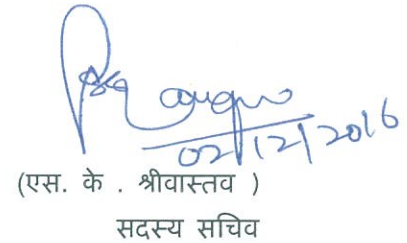 02/12/2016
(एस. के . श्रीवास्तव )
सदस्य सचिव